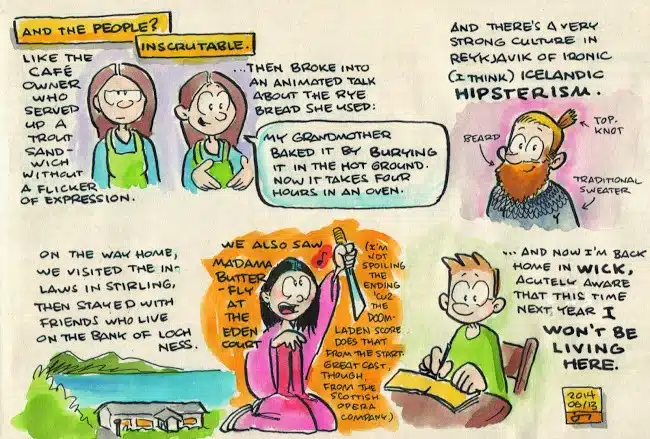 AND THE PEOPLE?
INSCRUTABLE.
LIKE THE
CAFÉ
OWNER
WHO
SERVED
UP A
TROUT
SAND-
WICH
WITHOUT
A FLICKER
OF EXPRESSION.
...THEN BROKE INTO
AN ANIMATED TALK
ABOUT THE RYE
BREAD SHE USED:
MY GRANDMOTHER
BAKED IT BY BURYING
IT IN THE HOT GROUND.
NOW IT TAKES FOUR
HOURS IN AN OVEN.
AND THERE'S A VERY
STRONG CULTURE IN
REYKJAVIK OF IRONIC
(I THINK) ICELANDIC
HIPSTERISM.
BEARD
TOP-
KNOT
TRADITIONAL
SWEATER
ON THE WAY HOME,
WE VISITED THE IN-
LAWS IN STIRLING,
THEN STAYED WITH
FRIENDS WHO LIVE
ON THE BANK OF LOCH
NESS.
WE ALSO SAW
MADAMA
BUTTER
-FLY
AT
THE
EDEN
COURT
(I'M
NOT
SPOILING
THE
ENDING
'CUZ
THE
DOOM-
LADEN SCORE
DOES THAT
FROM THE START.
GREAT CAST,
THOUGH,
FROM THE
SCOTTISH
OPERA
COMPANY.)
... AND NOW I'M BACK
HOME IN WICK,
ACUTELY AWARE
THAT THIS TIME
NEXT YEAR I
WON'T BE
LIVING
HERE.
2014
06/13